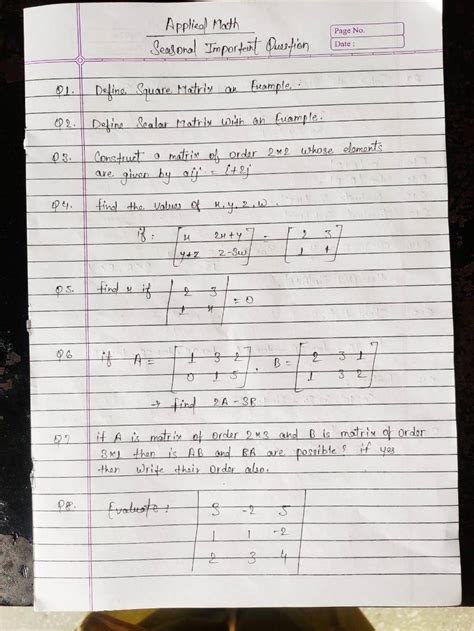 Applied Math
Page No.
Seasonal Important Question
Date :
Q1. Define Square Matrix an Example.
Q2. Define Scalar Matrix with an Example.
Q3. Construct a matrix of order 2×2 whose elements
are given by aij = i+2j
Q4. find the values of x, y, z, w.
if: [ x 2x+y ] = [ 2 3 ]
[ y+z z-3w ] [ 1 4 ]
Q5. find x if | 2 3 | = 0
| 1 x |
Q6 if A = [ 1 3 2 ], B = [ 2 3 1 ]
[ 0 1 5 ] [ 1 3 2 ]
→ find 2A-3B
Q7 if A is matrix of order 2×3 and B is matrix of order
3×1 then is AB and BA are possible? if yes
then write their order also.
Q8. Evaluate: | 3 -2 5 |
| 1 1 -2 |
| 2 3 4 |